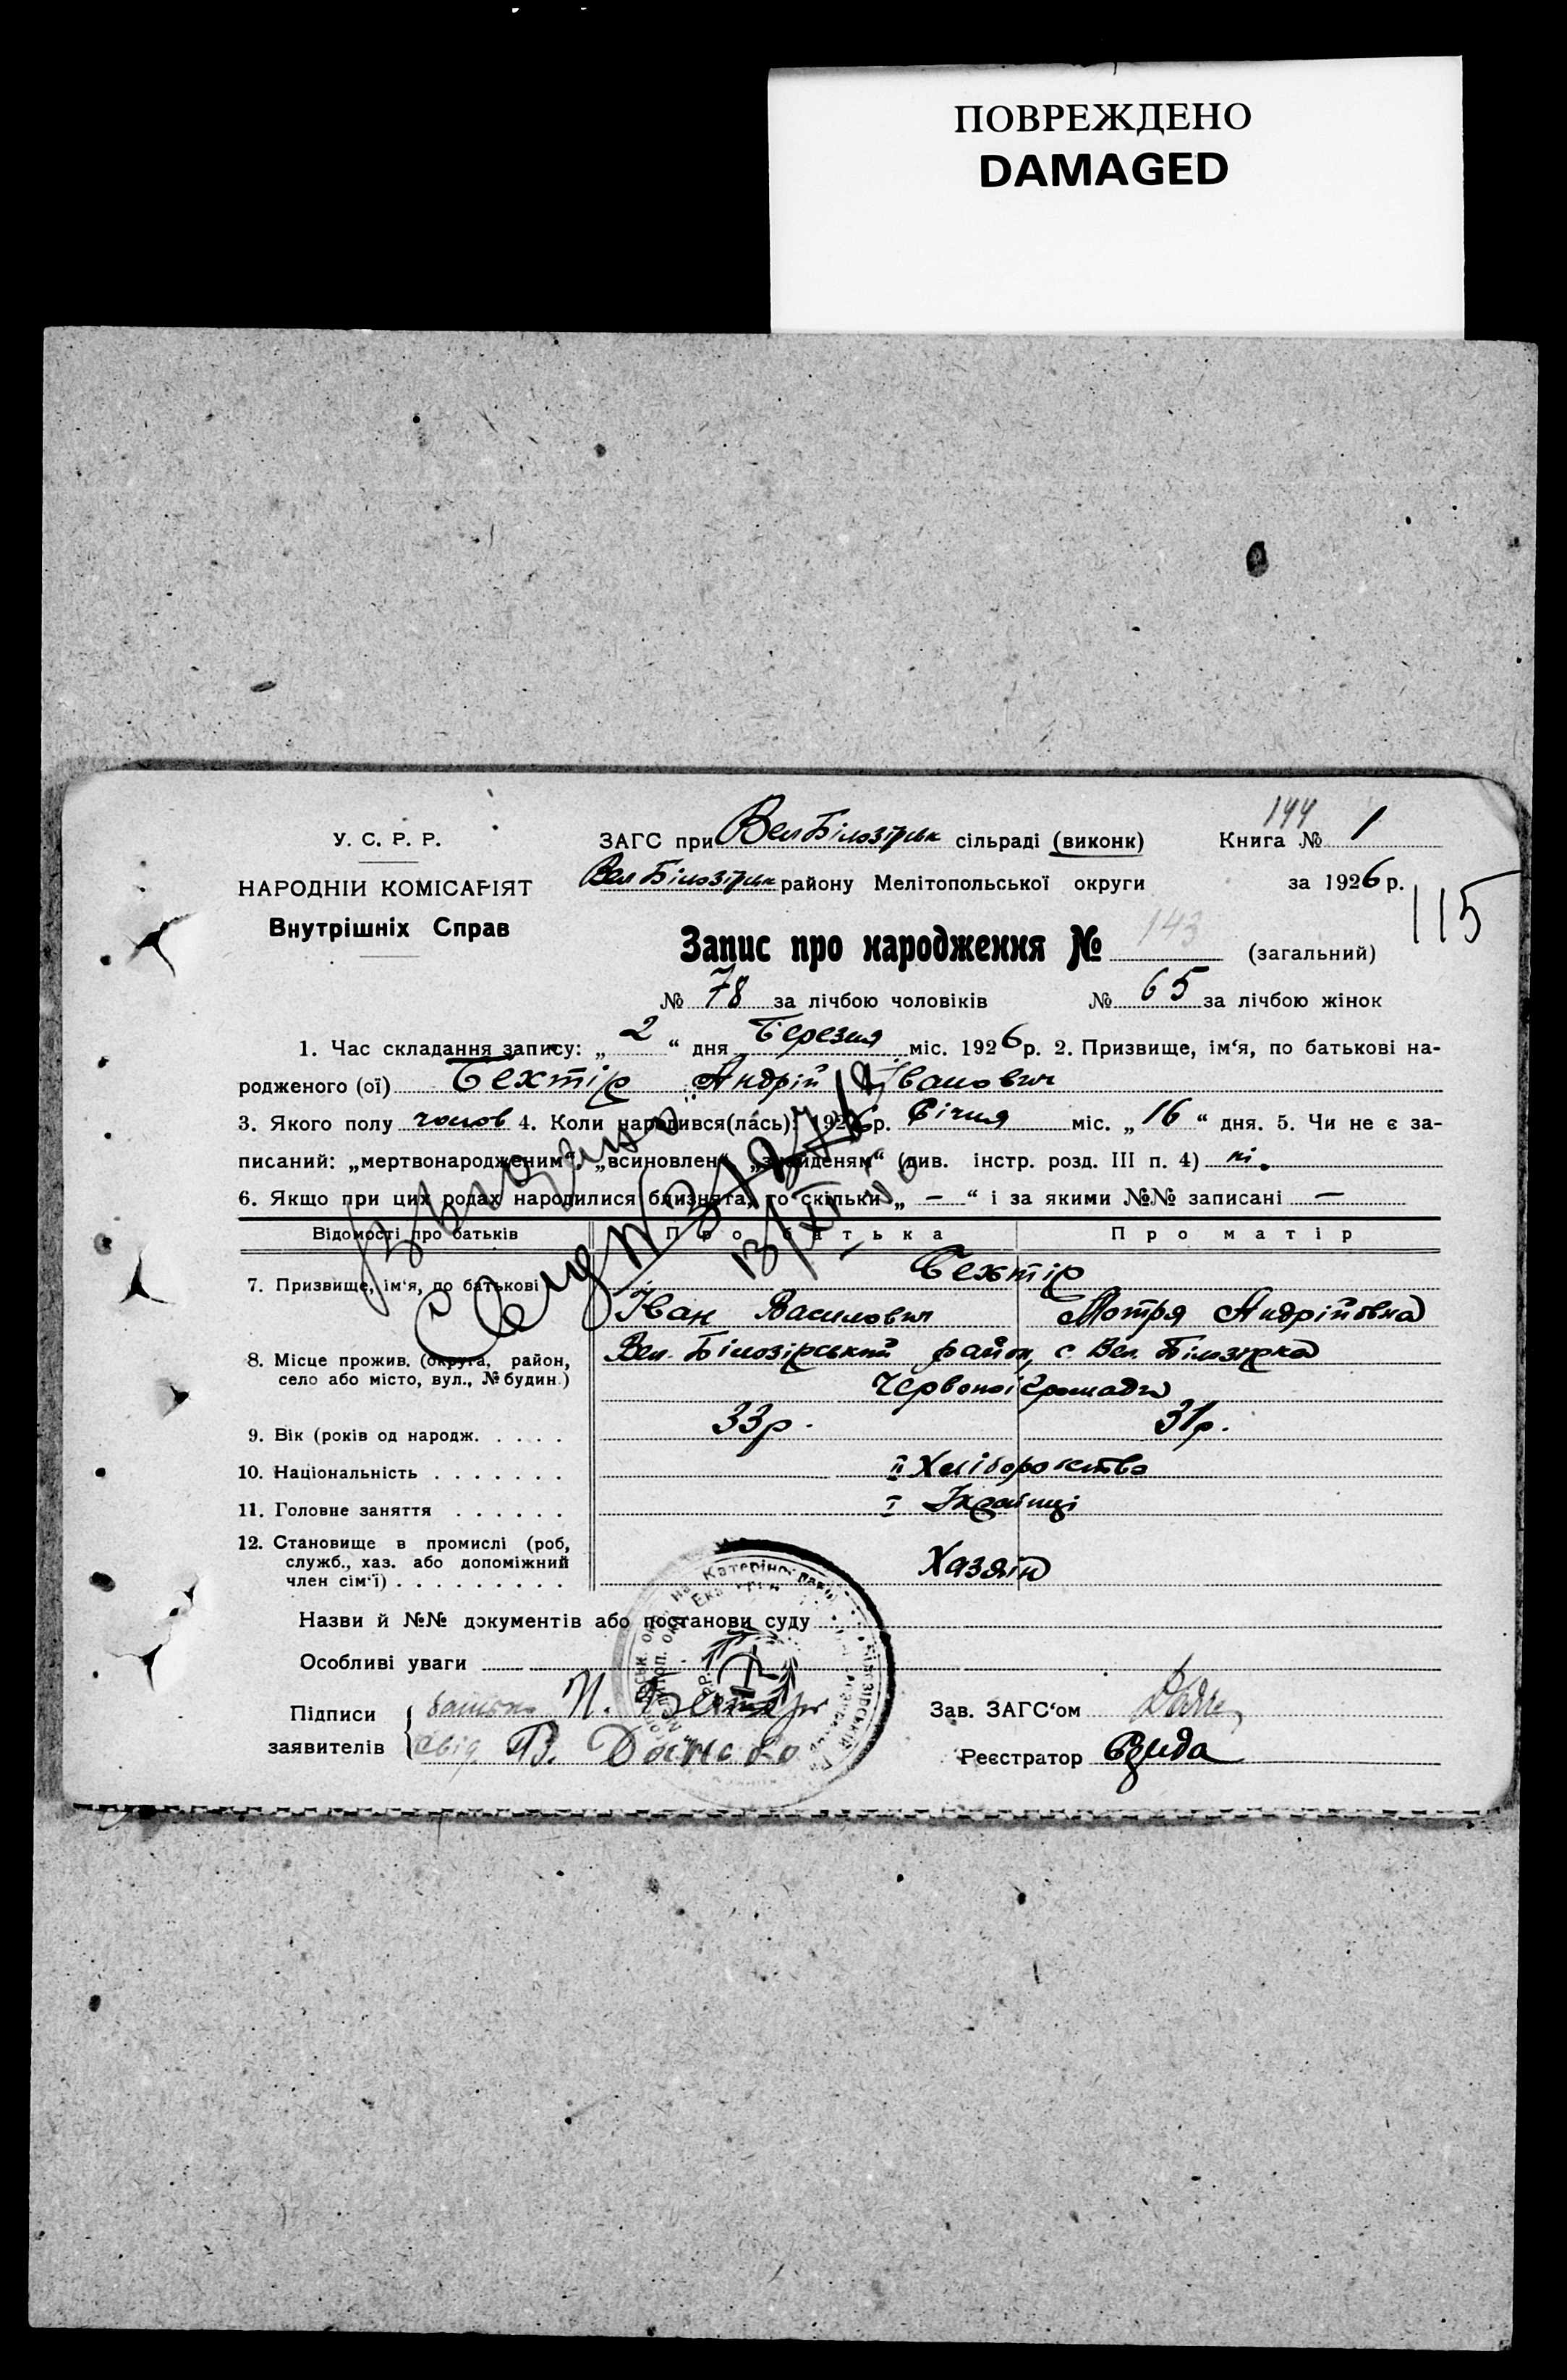 ПОВРЕЖДЕНО
DAMAGED
144
У. С. Р. Р.
ЗАГС при Вел Білозірськ сільраді (виконк) Книга № 1
НАРОДНІЙ КОМІСАРІЯТ
Вел Білозірськ району Мелітопольської округи за 1926 р.
115
Внутрішніх Справ
Запис про народження № 143 (загальний)
№ 78 за лічбою чоловіків № 65 за лічбою жінок
1. Час складання запису: „ 2 “ дня Березня міс. 1926 р. 2. Призвище, ім‘я, по батькові на-
родженого (ої) Бехтір Андрій Іванович
3. Якого полу чолов 4. Коли народився(лась): 1926 р. Січня міс. „ 16 “ дня. 5. Чи не є за-
писаний: „мертвонародженим“, „всиновлен“, „знайденям“ (див. інстр. розд. III п. 4) ні.
6. Якщо при цих родах народилися близнята, то скільки „ — “ і за якими №№ записані —
Відомості про батьків Про батька Про матір
7. Призвище, ім‘я, по батькові Бехтір
Іван Василович Мотря Андрійовна
8. Місце прожив. (округа, район, село або місто, вул., № будин.) Вел. Білозірський район, с. Вел. Білозірка
Червоної Громади
9. Вік (років од народж. . . . . 33 р. 31 р.
10. Національність . . . . . . . II Хліборобство
11. Головне заняття . . . . . . I Українці
12. Становище в промислі (роб, служб., хаз. або допоміжний член сім‘ї) . . . . . . . . . Хазяїн
Назви й №№ документів або постанови суду
Особливі уваги
Підписи заявителів
батько
свід В.
Зав. ЗАГС‘ом
Реєстратор